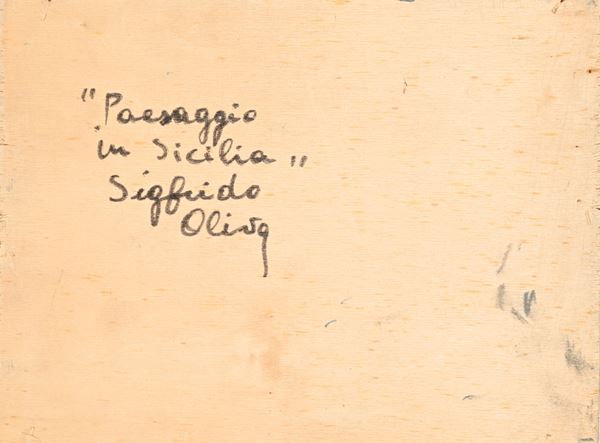 "Paesaggio
in Sicilia "
Sigfrido
Oliva